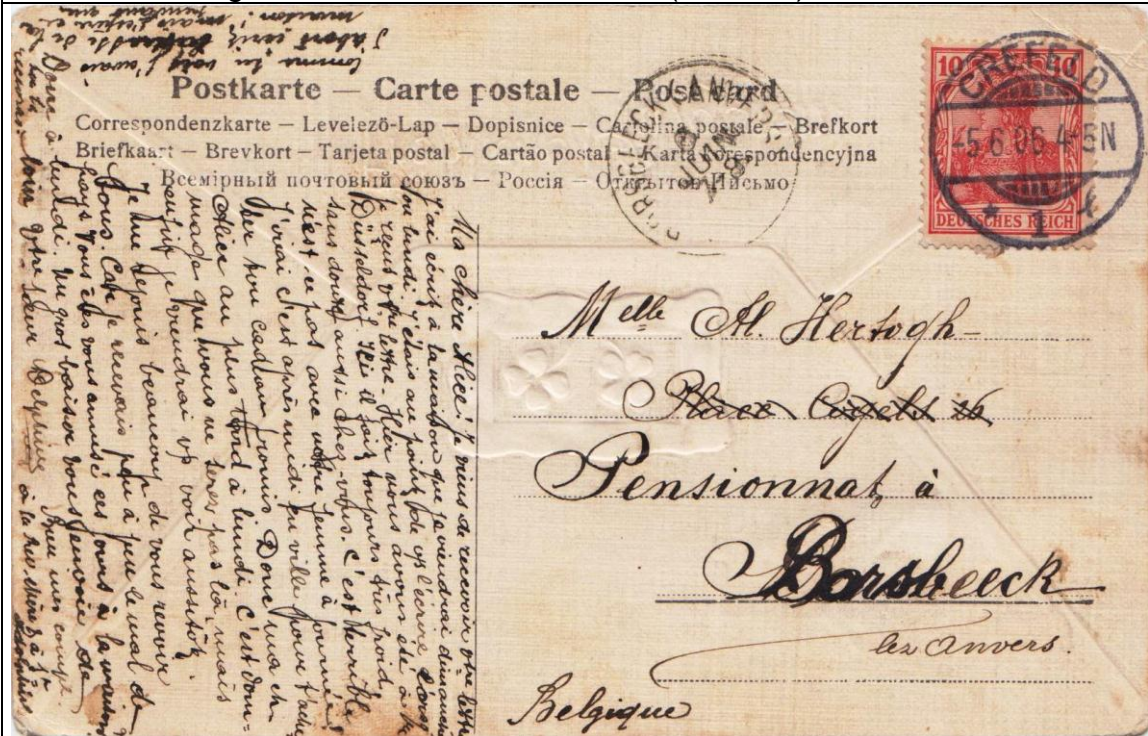 Postkarte — Carte postale — Post card
Correspondenzkarte — Levelező-Lap — Dopisnice — Cartolina postale — Brefkort
Briefkaart — Brevkort — Tarjeta postal — Cartão postal — Karta korespondencyjna
Всемірный почтовый союзъ — Россія — Открытое Письмо
CREFELD
5.6.06 4-5N
* 1 *
10 10
DEUTSCHES REICH
BORGERHOUT
Melle Al. Hertogh
Place Cogels 26
Pensionnat à
Borsbeeck
lez Anvers.
Belgique
Ma chère Alice! Je viens de recevoir votre lettre
j'ai écrit à la maison que je viendrai dimanche
ou lundi. J'étais au point de vs l'écrire lorsque
je reçus votre lettre. Hier nous avons été à
Düsseldorf. Ici il fait toujours très froid,
sans doute aussi chez-vous. C'est terrible
n'est ce pas avec votre femme à journée!
J'irai cet après midi en ville pour
ton cadeau promis. Donc ma
Alice au plus tard à lundi. C'est dom-
mage que vous ne serez pas là, mais
je viendrai vs voir aussitôt.
Je me réjouis beaucoup de vous revoir
tous. Car je
pays. Vous êtes vous amusé ces jours à la maison
Donc à lundi. Un gros baiser vous envoie de
loin votre sœur Delphine
Comme tu vois j'avais
d'abord écrit de la
maison, mais j'espère